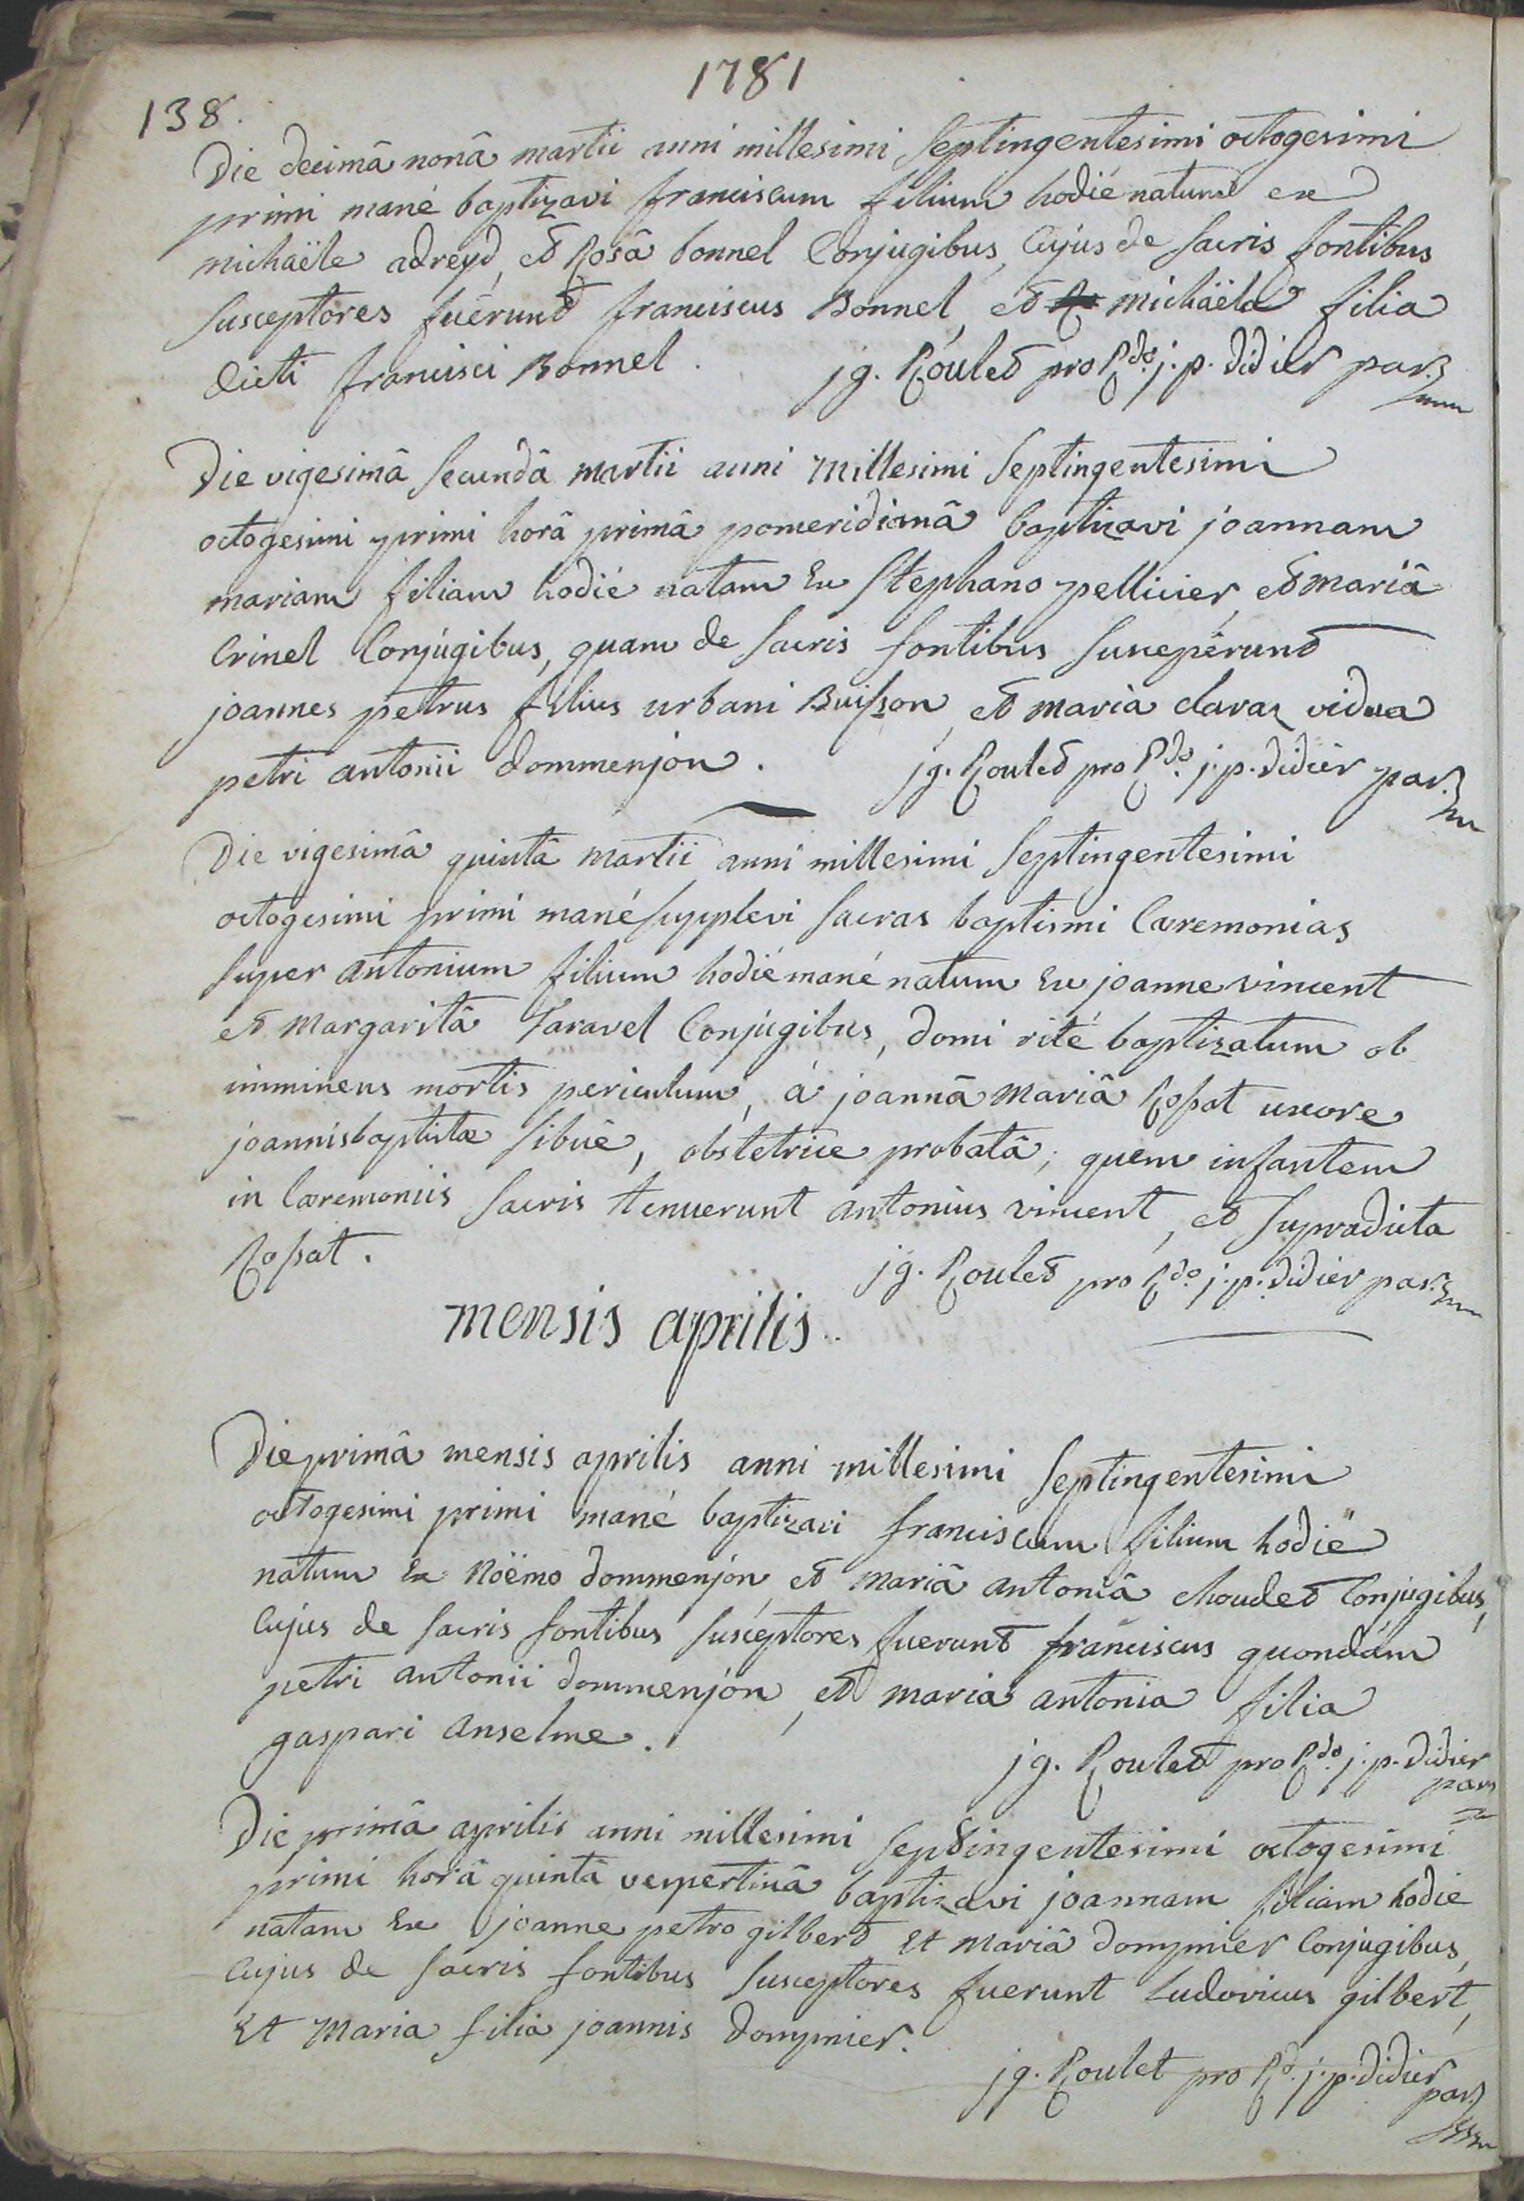 1781
138.
Die decimâ nonâ martii anni millesimi Septingentesimi octogesimi
primi mané baptizavi franciscum filium hodié natum ex
michaële adreyd, et Rosâ bonnel Conjugibus, Cujus de Sacris fontibus
Susceptores fuérunt franciscus Bonnel, et michaëla filia
dicti francisci Bonnel. jg. Roulet pro Rdo. j. p. didier par.
Die vigesimâ Secundâ martii anni Millesimi Septingentesimi
octogesimi primi horâ primâ pomeridianâ baptizavi joannam
mariam filiam hodié natam Ex Stephano pellicier, et mariâ
Crinel Conjugibus, quam de Sacris fontibus Susceperunt
joannes petrus filius urbani Buisson, et maria claraz vidua
petri antonii dommenjon. jg. Roulet pro Rdo. j. p. didier par.
Die vigesimâ quintâ martii anni millesimi Septingentesimi
octogesimi primi mané Supplevi Sacras baptismi Cæremonias
Super antonium filium hodié mané natum Ex joanne vincent
et Margaritâ Taravel Conjugibus, domi rité baptizatum ob
imminens mortis periculum, á joannâ Mariâ Rossat uxore
joannisbaptistæ Sibué, obstetrice probatâ; quem infantem
in Cæremoniis Sacris tenuerunt antonius vincent, et Supradicta
Rossat. jg. Roulet pro Rdo. j. p. didier par.
mensis aprilis.
Die primâ mensis aprilis anni millesimi Septingentesimi
octogesimi primi mané baptizavi franciscum filium hodié
natum Ex Nöemo dommenjon, et mariâ antoniâ choudet Conjugibus,
Cujus de Sacris fontibus Susceptores fuerunt franciscus quondam
petri antonii dommenjon, et maria antonia filia
gaspari anselme. jg. Roulet pro Rdo. j. p. didier
par
Die primâ aprilis anni millesimi Septingentesimi octogesimi
primi horâ quintâ vespertinâ baptizavi joannam filiam hodie
natam Ex joanne petro gilbert Et mariâ dompnier Conjugibus,
Cujus de Sacris fontibus Susceptores fuerunt Ludovicus gilbert,
Et Maria filia joannis dompnier.
jg. Roulet pro Rd. j. p. didier
par